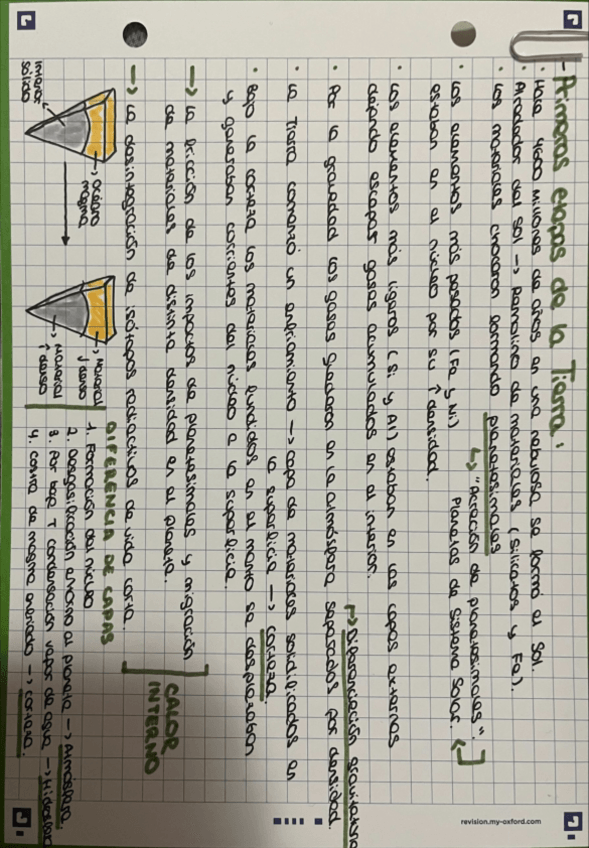 - Primeras etapas de la Tierra:
· Hace 4600 millones de años en una nebulosa se formó el Sol.
· Alrededor del Sol → Remolino de materiales (silicatos y Fe).
· Los materiales chocaron formando planetesimales
↳ "Acreción de planetesimales".
Planetas de Sistema Solar.
· Los elementos más pesados (Fe y Ni)
estaban en el núcleo por su ↑ densidad.
· Los elementos más ligeros (Si y Al) estaban en las capas externas
dejando escapar gases acumulados en el interior.
↱ Diferenciación gravitatoria
· Por la gravedad los gases quedaron en la atmósfera separados por densidad.
· La Tierra comenzó un enfriamiento → capa de materiales solidificados en
la superficie → corteza.
· Bajo la corteza los materiales fundidos en el manto se desplazaban
y generaban corrientes del núcleo a la superficie.
→ La fricción de los impactos de planetesimales y migración
de materiales de distinta densidad en el planeta.
→ La desintegración de isótopos radiactivos de vida corta.
CALOR
INTERNO
DIFERENCIA DE CAPAS
1. Formación del núcleo
2. Desgasificación entorno al planeta → Atmósfera
3. Por baja T condensación vapor de agua → Hidrosfera
4. Costra de magma enfriado → corteza.
→ Océano
magma
interior
sólido
→ Material
↓ denso
→ Material
↑ denso
revision.my-oxford.com